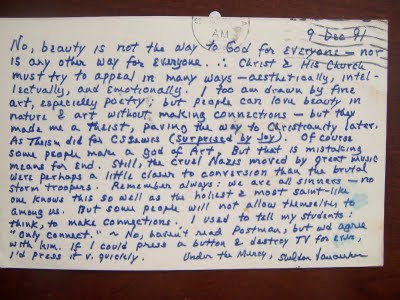 AM
9 Dec 91
No, beauty is not the way to God for everyone — nor
is any other way for everyone. ∴ Christ & His Church
must try to appeal in many ways — aesthetically, intel-
lectually, and emotionally. I too am drawn by fine
art, especially poetry; but people can love beauty in
nature & art without making connections — but they
made me a theist, paving the way to Christianity later.
As Theism did for CS Lewis (Surprised by Joy). Of course
some people make a god of Art. But that is mistaking
means for End. Still, the cruel Nazis moved by great music
were perhaps a little closer to conversion than the brutal
storm troopers. Remember always: we are all sinners — no
one knows this so well as the holiest & most saint-like
among us. But some people will not allow themselves to
think, to make connections. I used to tell my students:
"Only connect." ~ No, haven't read Postman, but wd agree
with him. If I could press a button & destroy TV for ever,
I'd press it v. quickly. Under the Mercy, Sheldon Vanauken